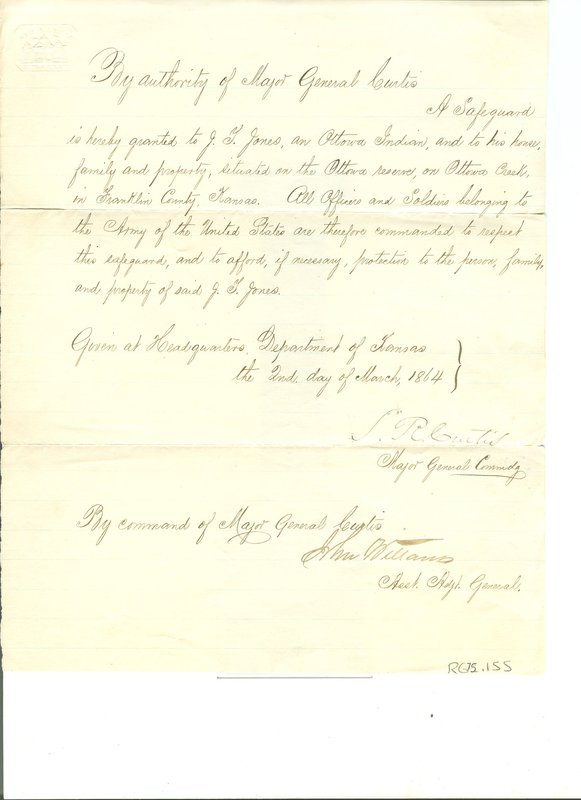 By authority of Major General Curtis
A Safeguard
is hereby granted to J. T. Jones, an Ottowa Indian, and to his house,
family and property, situated on the Ottowa reserve, on Ottowa Creek,
in Franklin County, Kansas. All Officers and Soldiers belonging to
the Army of the United States are therefore commanded to respect
this safeguard, and to afford, if necessary, protection to the person, family,
and property of said J. T. Jones.
Given at Headquarters, Department of Kansas
the 2nd. day of March, 1864
S. R. Curtis
Major General Commdg
By command of Major General Curtis
John Williams
Asst. Adjt. General.
RG75.155